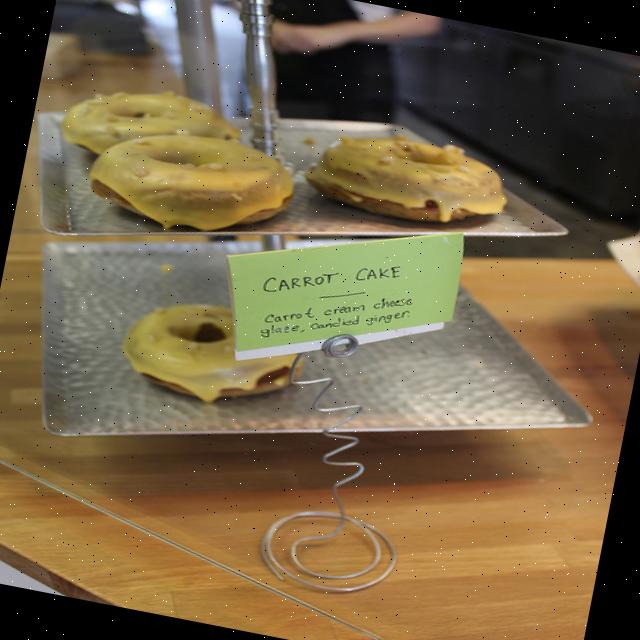 CARROT CAKE
Carrot cream cheese
glaze, candied ginger.